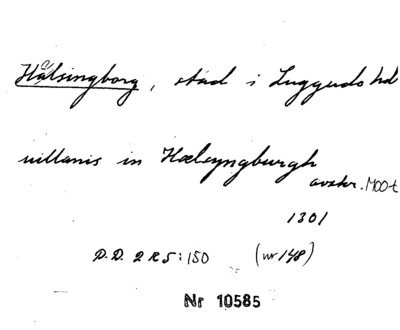 Hälsingborg, stad i Luggude hd
villanis in Hælsyngburgh
avskr. 1400-t
1301
D.D. 2 R 5: 150 (nr 148)
Nr 10585